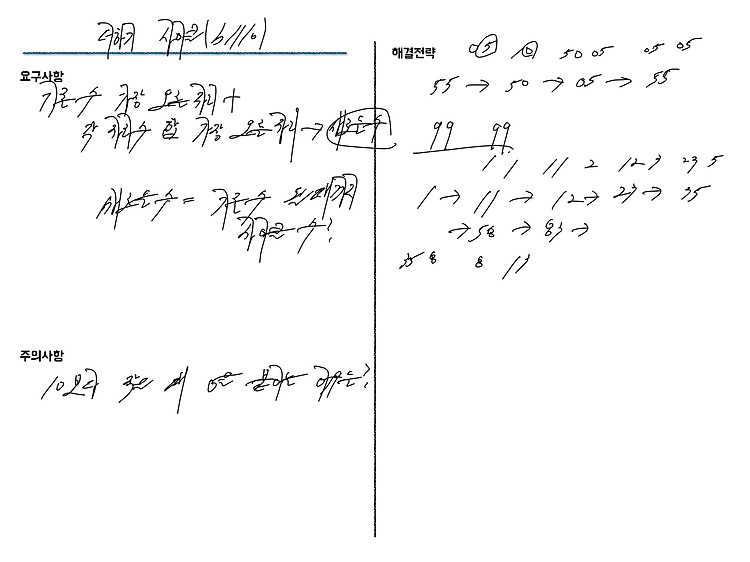 더하기 사이클(b1110)
요구사항
기존수 가장 오른자리 +
각 자리수 합 가장 오른자리 → 새로운수
새로운수 = 기존수 될때까지
사이클 수?
주의사항
10보다 작을 때 0을 붙이는 이유는?
해결전략
05 10 50 05 05 05
55 → 50 → 05 → 55
99 99
1 1 11 2 12 3 23 5
1 → 11 → 12 → 23 → 35
→ 58 → 83 →
35 8 8 13